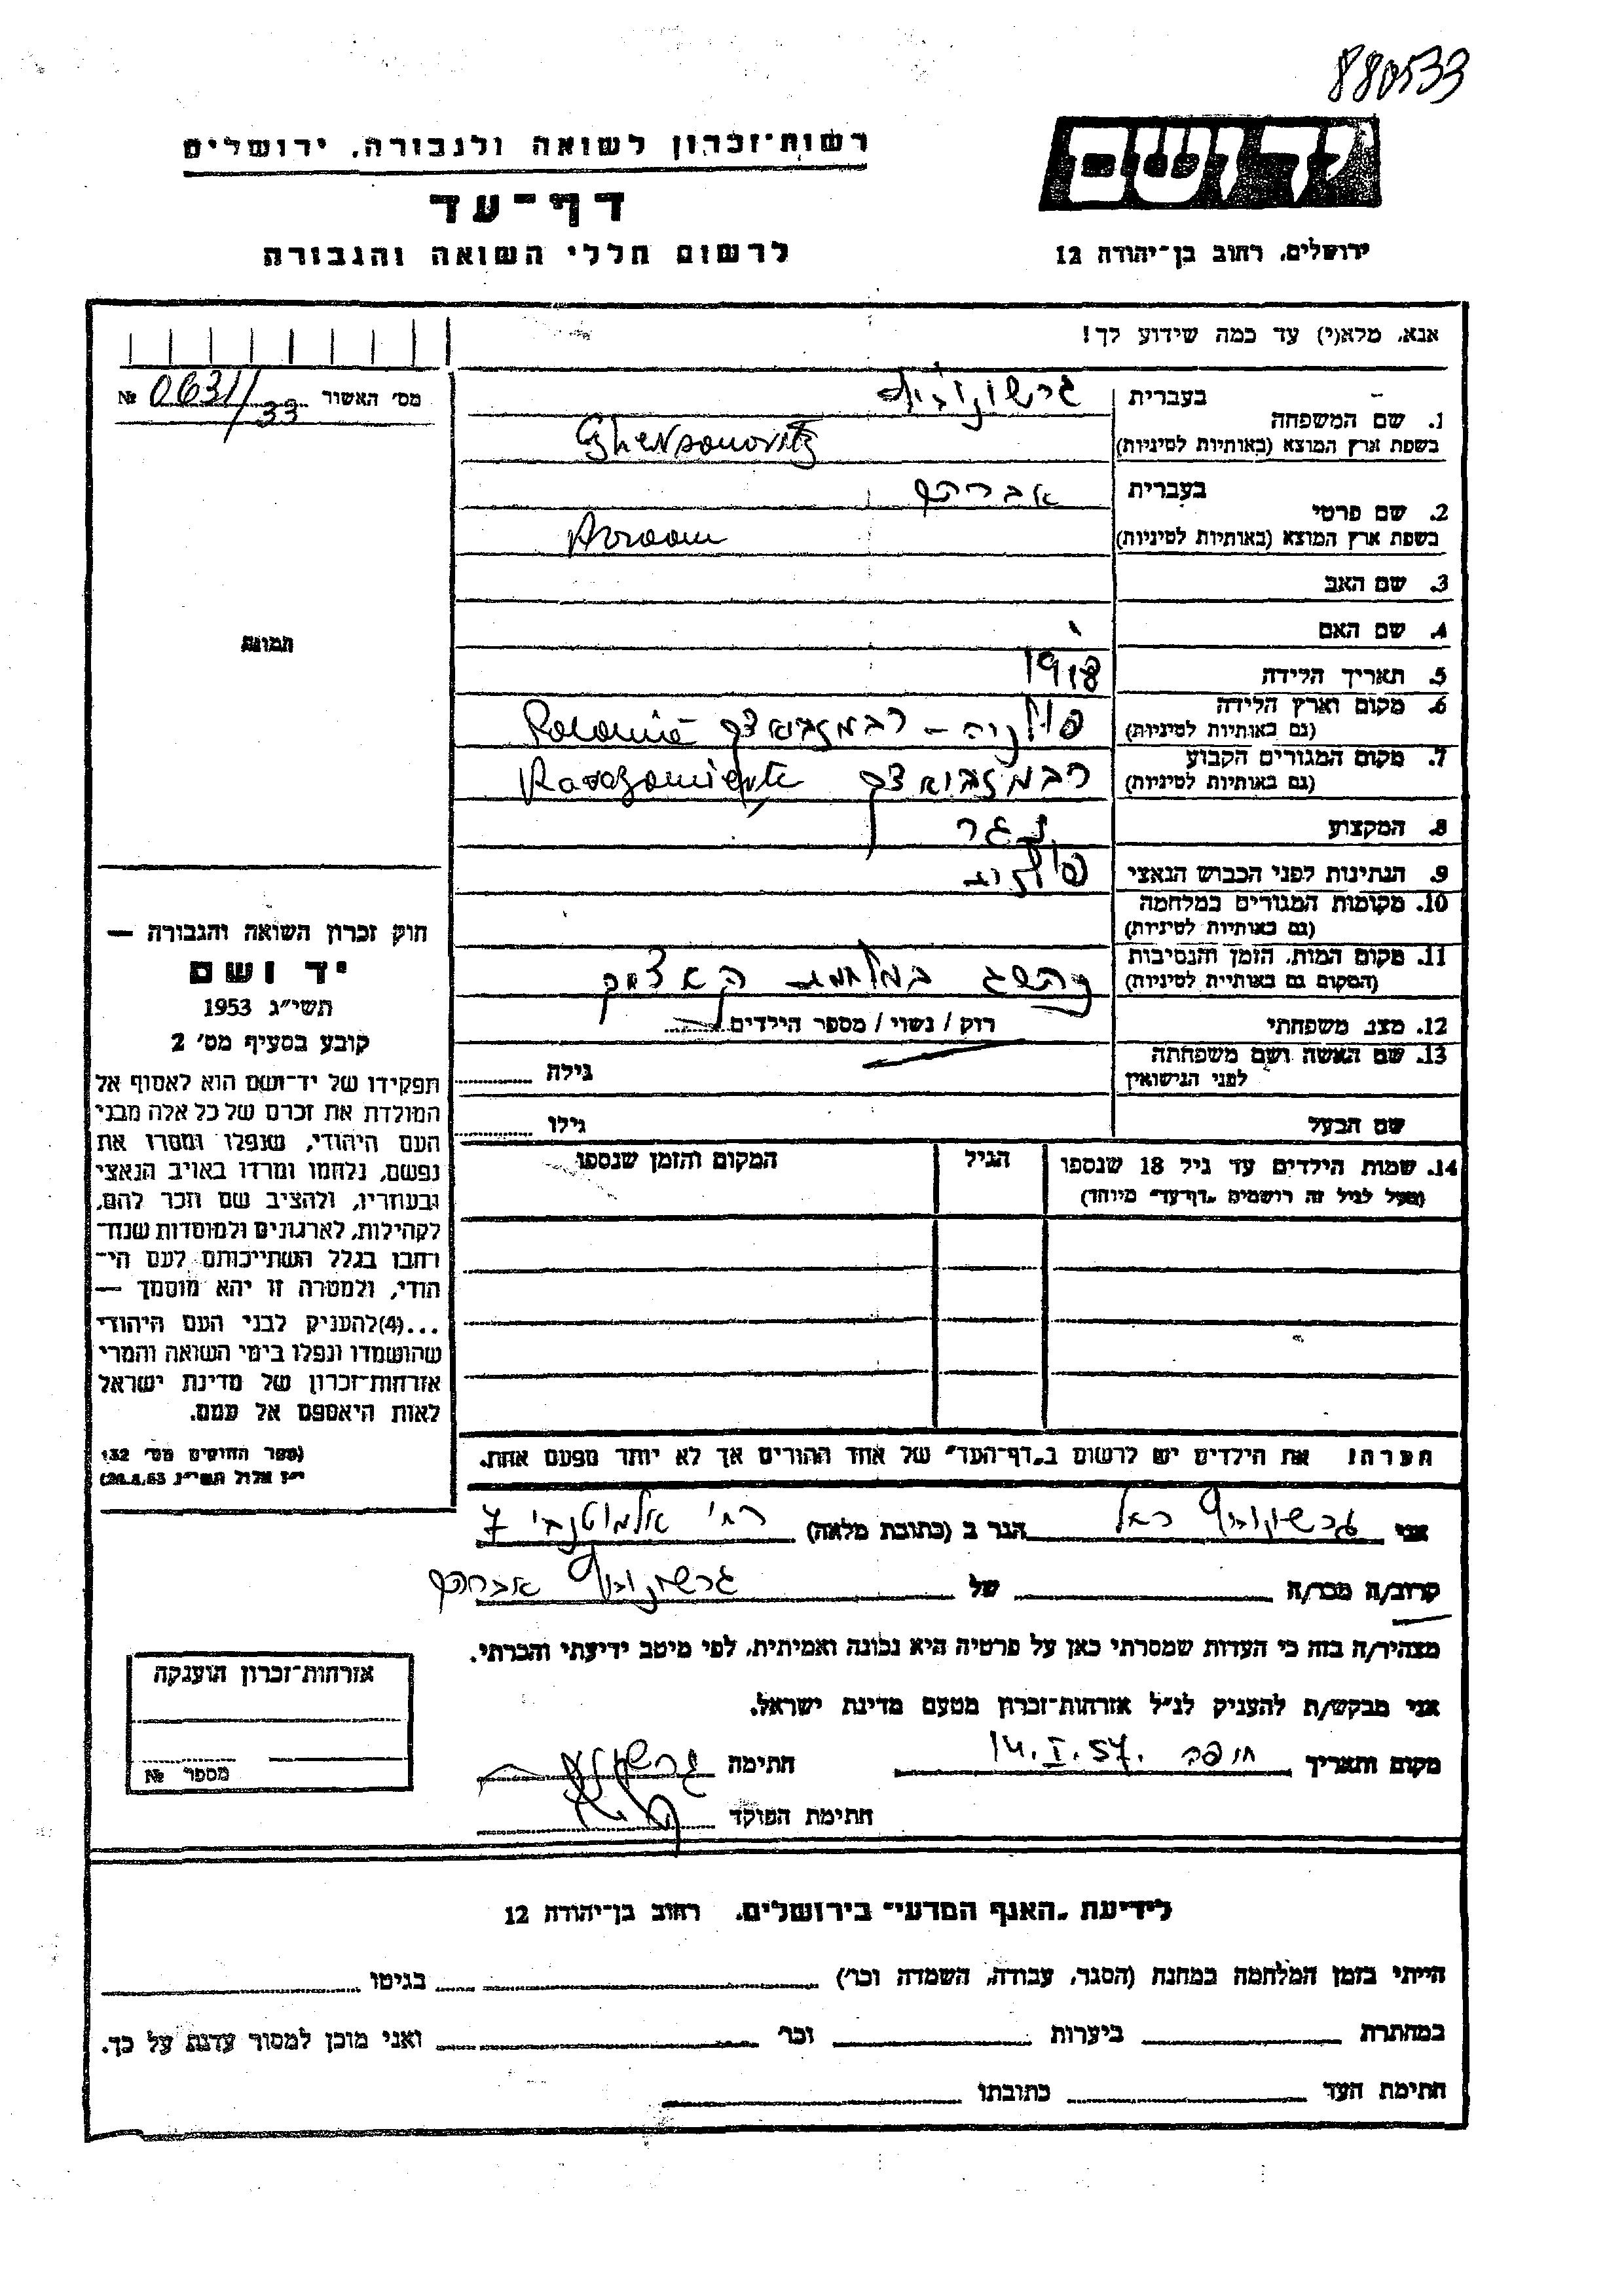 880533
יד ושם
רשות־זכרון לשואה ולגבורה, ירושלים
דף־עד
לרשום חללי השואה והגבורה
ירושלים, רחוב בן־יהודה 12
אנא, מלא(י) עד כמה שידוע לך!
מס׳ האשור № 0631/33
1. שם המשפחה
בעברית גרשונוביץ
בשפת ארץ המוצא (באותיות לטיניות) Ghersonovitz
2. שם פרטי
בעברית אברהם
בשפת ארץ המוצא (באותיות לטיניות) Avraam
3. שם האב
4. שם האם
5. תאריך הלידה 1918
6. מקום וארץ הלידה
(גם באותיות לטיניות) פולניה – Polonia
7. מקום המגורים הקבוע
(גם באותיות לטיניות)
8. המקצוע נגר
9. הנתינות לפני הכבוש הנאצי פולנית
10. מקומות המגורים במלחמה
(גם באותיות לטיניות)
11. מקום המות, הזמן והנסיבות
(המקום גם באותיות לטיניות)
12. מצב משפחתי רוק / נשוי / מספר הילדים
13. שם האשה ושם משפחתה
לפני הנישואין גילה
שם הבעל גילו
14. שמות הילדים עד גיל 18 שנספו הגיל המקום והזמן שנספו
(מעל לגיל זה רושמים „דף־עד״ מיוחד)
תמונה
חוק זכרון השואה והגבורה —
יד ושם
תשי״ג 1953
קובע בסעיף מס׳ 2
תפקידו של יד־ושם הוא לאסוף אל
המולדת את זכרם של כל אלה מבני
העם היהודי, שנפלו ומסרו את
נפשם, נלחמו ומרדו באויב הנאצי
ובעוזריו, ולהציב שם וזכר להם,
לקהילות, לארגונים ולמוסדות שנח־
רחבו בגלל השתייכותם לעם הי־
הודי, ולמטרה זו יהא מוסמך —
...(4)להעניק לבני העם היהודי
שהושמדו ונפלו בימי השואה והמרי
אזרחות־זכרון של מדינת ישראל
לאות היאספם אל עמם.
(ספר החוקים מס׳ 132
י״ז אלול תשי״ג 28.8.53)
הערה! את הילדים יש לרשום ב„דף־העד״ של אחד ההורים אך לא יותר מפעם אחת.
אני גרשונוביץ הגר ב (כתובת מלאה) רח׳ 7
קרוב/ה מכר/ה של גרשונוביץ אברהם
מצהיר/ה בזה כי העדות שמסרתי כאן על פרטיה היא נכונה ואמיתית, לפי מיטב ידיעתי והכרתי.
אני מבקש/ת להעניק לנ״ל אזרחות־זכרון מטעם מדינת ישראל.
מקום ותאריך חיפה 14.I.57. חתימה
חתימת הפוקד
אזרחות־זכרון הוענקה
מספר №
לידיעת „האגף המדעי״ בירושלים, רחוב בן־יהודה 12
הייתי בזמן המלחמה במחנה (הסגר, עבודה, השמדה וכו׳) בגיטו
במחתרת ביערות וכו׳ ואני מוכן למסור עדות על כך.
חתימת העד כתובתו